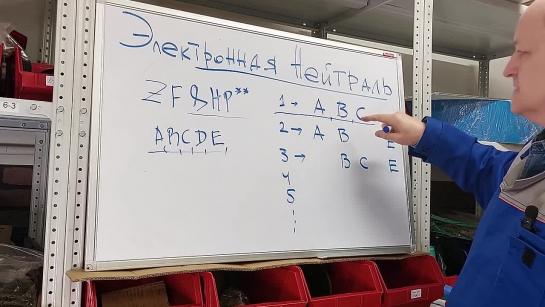 Электронная Нейтраль
ZF 8HP**
ABCDE
1 → A B C
2 → A B E
3 → B C E
4
5
6-3